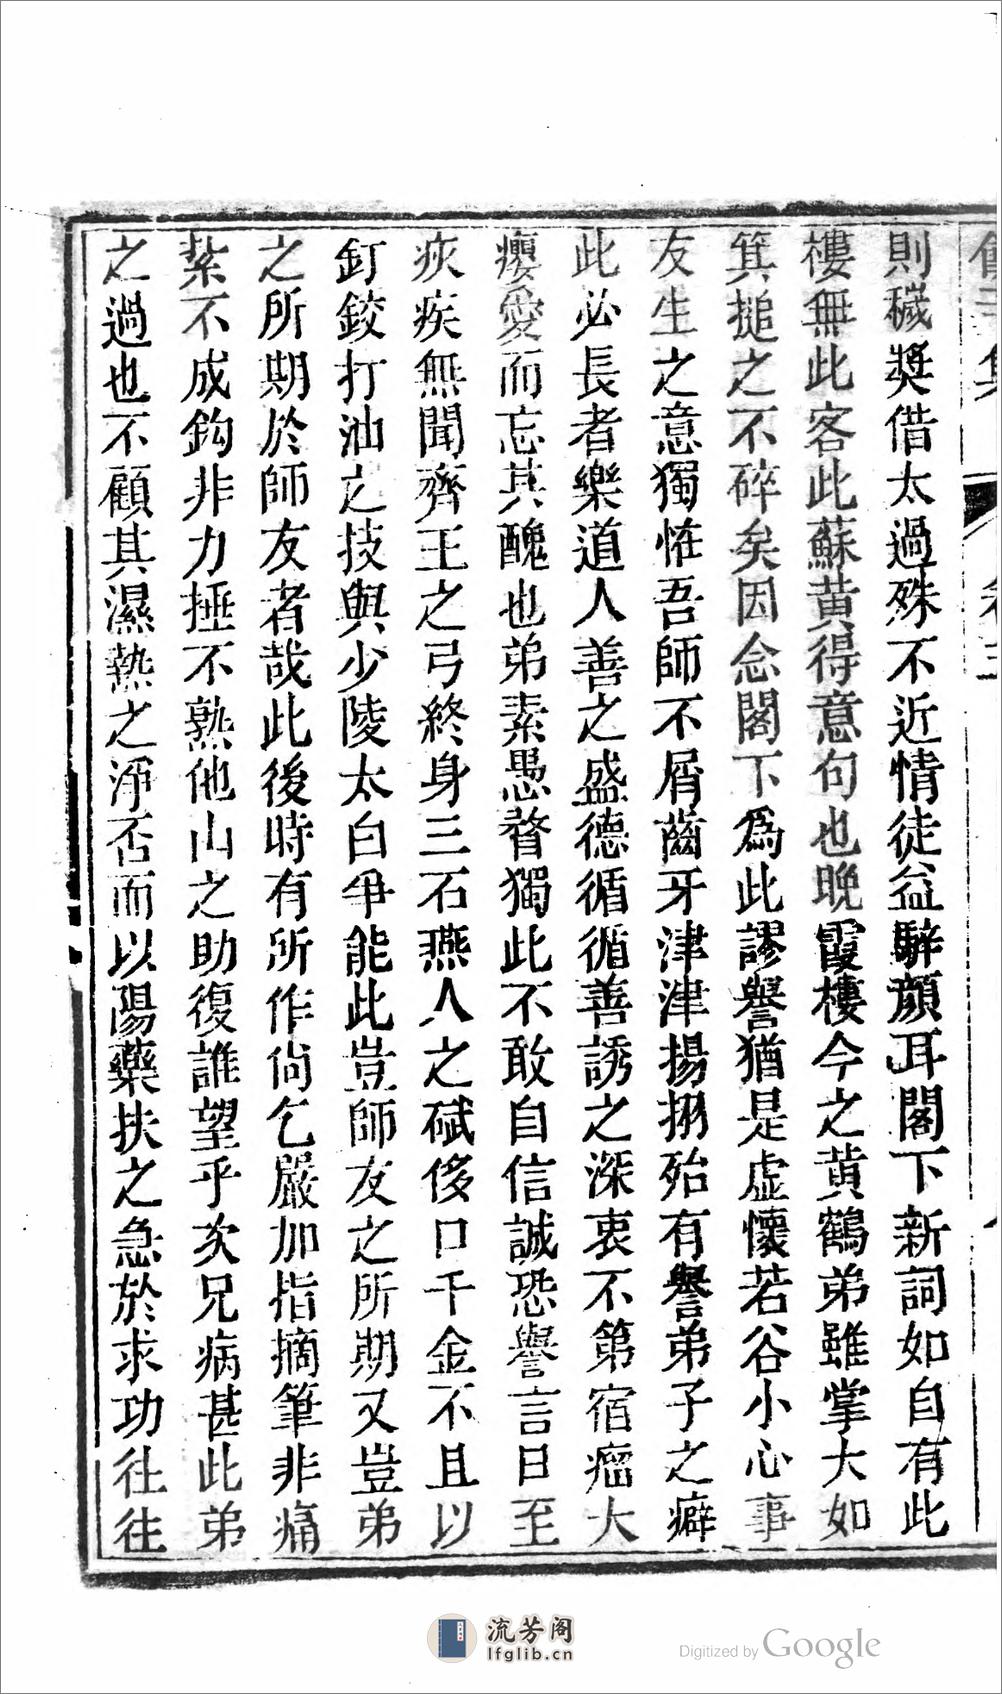 則穢奬借太過殊不近情徒益騂顔耳閣下新詞如自有此
樓無此客此蘇黄得意句也晚霞樓今之黄鶴弟雖掌大如
箕搥之不碎矣因念閣下爲此謬譽猶是虚懷若谷小心事
友生之意獨怪吾師不屑齒牙津津揚搦殆有譽弟子之癖
此必長者樂道人善之盛德循循善誘之深衷不第宿瘤大
癭愛而忘其醜也弟素愚瞀獨此不敢自信誠恐譽言日至
疢疾無聞齊王之弓終身三石燕人之碔侈口千金不且以
釘鉸打油之技與少陵太白爭能此豈師友之所期又豈弟
之所期於師友者哉此後時有所作尙乞嚴加指摘筆非痛
紮不成鈎非力捶不熟他山之助復誰望乎次兄病甚此弟
之過也不顧其濕熱之淨否而以陽藥扶之急於求功往往
卷三
流芳阁
lfglib.cn
Digitized by Google